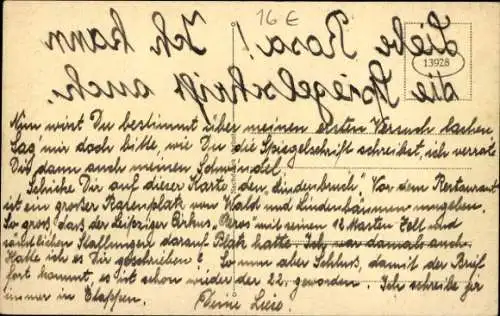 16 €
Liebe Rosa! Ich kann
13928
die Spiegelschrift auch.
Nun wirst Du bestimmt über meinen ersten Versuch lachen.
Sag mir doch bitte, wie Du die Spiegelschrift schreibst, ich verrate
Dir dann auch meinen
Schicke Dir auf dieser Karte den „Lindenbruch". Vor dem Restaurant
ist ein großer Karenplatz von Wald und Lindenbäumen umgeben.
So groß, daß der Leipziger Zirkus „Aeros" mit seinen 12 Masten Zelt und
sämtlichen Stallungen darauf Platz hatte. Ich war damals auch.
Hatte ich es Dir geschrieben? So nun aber Schluß, damit der Brief
fort kommt, es ist schon wieder der 22. geworden. Ich schreibe
immer in Etappen. Deine Liese.